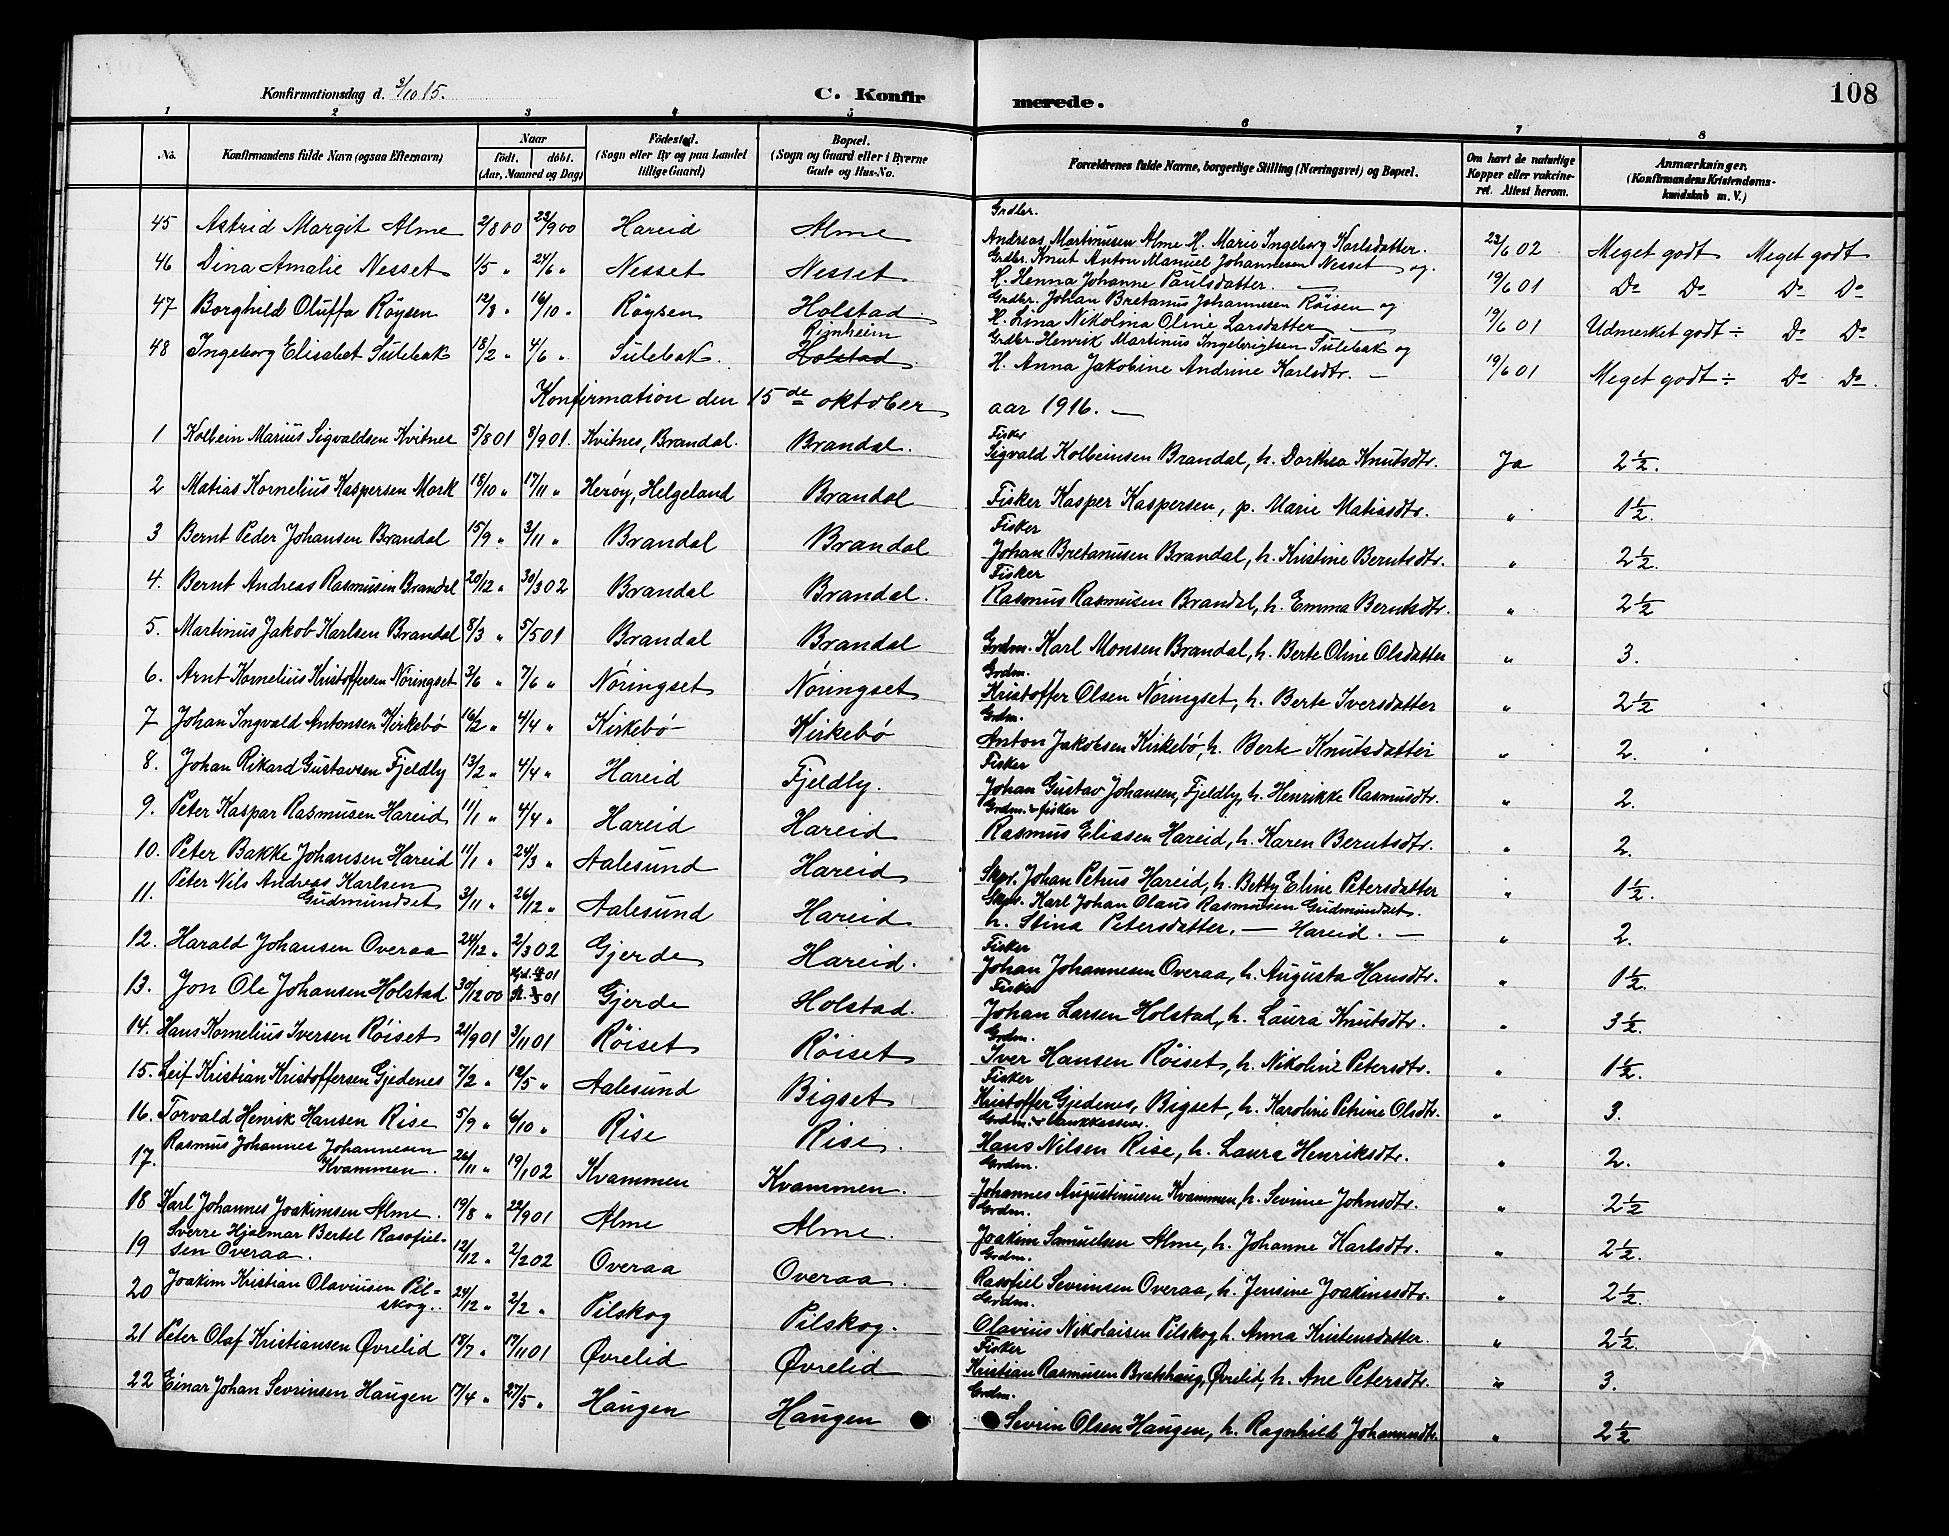 Konfirmationsdag d. 3/10 15.
C. Konfir
merede.
108
1 2 3 4 5 6 7 8
No. Konfirmandens fulde Navn (ogsaa Efternavn) Naar födt. döbt. (Aar, Maaned og Dag) Födested. (Sogn eller By og paa Landet tillige Gaard) Bopæl. (Sogn og Gaard eller i Byerne Gade og Hus-No. Forældrenes fulde Navne, borgerlige Stilling (Næringsvei) og Bopæl. Om havt de naturlige Kopper eller vakcineret. Attest herom. Anmærkninger. (Konfirmandens Kristendomskundskab m. V.)
45 Astrid Margit Alme 2/8 00 23/9 00 Hareid Alme Grdbr. Andreas Martinusen Alme H. Marie Ingeborg Karlsdatter. 23/6 02 Meget godt Meget godt
46 Dina Amalie Nesset 1/5 " 24/6 " Nesset Nesset Grdbr. Knut Anton Manuel Johannesen Nesset og H. Henna Johanne Paulsdatter. — 19/6 01 Do Do Do Do
47 Borghild Oluffa Røysen 12/8 " 16/10 " Røysen Holstad Grdbr. Johan Bretanus Johannesen Røisen og H. Lina Nikolina Oline Larsdatter — 19/6 01 Udmerket godt ÷ Do Do
48 Ingeborg Elisabet Sulebak 18/2 " 4/6 " Sulebak. Rimheim Holstad Grdbr. Henrik Martinus Ingebrigtsen Sulebak og H. Anna Jakobine Andrine Karlsdtr. — 19/6 01 Meget godt ÷ Do Do.
Konfirmation den 15de oktober aar 1916. —
1 Kolbein Marius Sigvaldsen Kvitnes 5/8 01 8/9 01. Kvitnes, Brandal. Brandal. Fisker Sigvald Kolbeinsen Brandal, h. Dorthea Knutsdtr. Ja 2½.
2 Matias Kornelius Kaspersen Mork 18/10 " 17/11 " Herøy, Helgeland Brandal Fisker Kasper Kaspersen, p. Marie Matiasdtr. " 1½.
3 Bernt Peder Johansen Brandal 15/9 " 3/11 " Brandal Brandal Fisker Johan Bretanusen Brandal, h. Kristine Berntsdtr. " 2½.
4. Bernt Andreas Rasmusen Brandal 20/12 " 30/3 02 Brandal Brandal. Fisker Rasmus Rasmusen Brandal, h. Emma Berntsdtr. " 2½
5. Martinus Jakob Karlsen Brandal 8/3 " 5/5 01 Brandal Brandal Grdm. Karl Monsen Brandal, h. Berte Oline Olsdatter " 3.
6. Arnt Kornelius Kristoffersen Nöringset 3/6 " 7/6 " Nöringset Nöringset Grdm. Kristoffer Olsen Nöringset, h. Berte Iversdatter " 2½
7 Johan Ingvald Antonsen Kirkebö 16/2 " 4/4 " Kirkebö Kirkebö Grdm. Anton Jakobsen Kirkebö, h. Berte Knutsdatter " 2.
8. Johan Rikard Gustavsen Fjeldly 13/2 " 4/4 " Hareid Fjeldly. Fisker Johan Gustav Johansen, Fjeldly, h. Henrikke Rasmusdtr. " 2.
9. Peter Kaspar Rasmusen Hareid 11/1 " 4/4 " Hareid Hareid Grdm. & fisker Rasmus Eliasen Hareid, h. Karen Berntsdtr. " 2.
10. Peter Bakke Johansen Hareid 11/1 " 24/3 " Aalesund Hareid Skpr. Johan Petrus Hareid, h. Betty Eline Petersdatter " 1½.
11. Peter Nils Andreas Karlsen Gudmundset 3/11 " 26/12 " Aalesund Hareid Skpr. Karl Johan Olaus Rasmusen Gudmundset. h. Stina Petersdatter. — Hareid. — " 2.
12. Harald Johansen Overaa 24/12 " 2/3 02 Gjerde Hareid. Fisker Johan Johannesen Overaa, h. Augusta Hansdtr. " 1½.
13. Jon Ole Johansen Holstad 30/12 00 Gjerde Holstad. Fisker Johan Larsen Holstad, h. Laura Knutsdtr. " 3½.
14. Hans Kornelius Iversen Röiset 21/9 01 3/11 01 Röiset Röiset Grdm. Iver Hansen Röiset, h. Nikoline Petersdtr. " 1½.
15. Leif Kristian Kristoffersen Gjedenes 7/2 " 12/5 " Aalesund Bigset Fisker Kristoffer Gjedenes, Bigset, h. Karoline Petrine Olsdtr. " 3.
16. Torvald Henrik Hansen Rise 5/9 " 6/10 " Rise Rise. Grdm. & bankkasser. Hans Nilsen Rise, h. Laura Henriksdtr. " 2.
17. Rasmus Johannes Johannesen Kvammen. 26/11 " 19/1 02 Kvammen Kvammen. Grdm. Johannes Augustinusen Kvammen, h. Sevrine Johnsdtr. " 2½
18 Karl Johannes Joakimsen Alme. 19/8 " 22/9 01 Alme Alme. Grdm. Joakim Samuelsen Alme, h. Johanne Karlsdtr. " 2½.
19 Sverre Hjalmar Bertel Rasofielsen Overaa. 12/12 " 2/2 02 Overaa Overaa. Grdm. Rasofiel Sevrinsen Overaa, h. Jensine Joakimsdtr. " 2½.
20 Joakim Kristian Olaviusen Pilskog. 24/12 " 2/2 " Pilskog Pilskog. Grdm. Olavius Nikolaisen Pilskog, h. Anna Kristensdatter. " 2½.
21 Peter Olaf Kristiansen Øvrelid 18/7 " 17/11 01 Øvrelid Øvrelid Fisker Kristian Rasmusen Bratshaug, Øvrelid, h. Ane Petersdtr. " 3.
22 Einar Johan Sevrinsen Haugen 17/4 " 27/5 " Haugen Haugen Grdm. Sevrin Olsen Haugen, h. Ragnhild Johannesdtr. " 2½